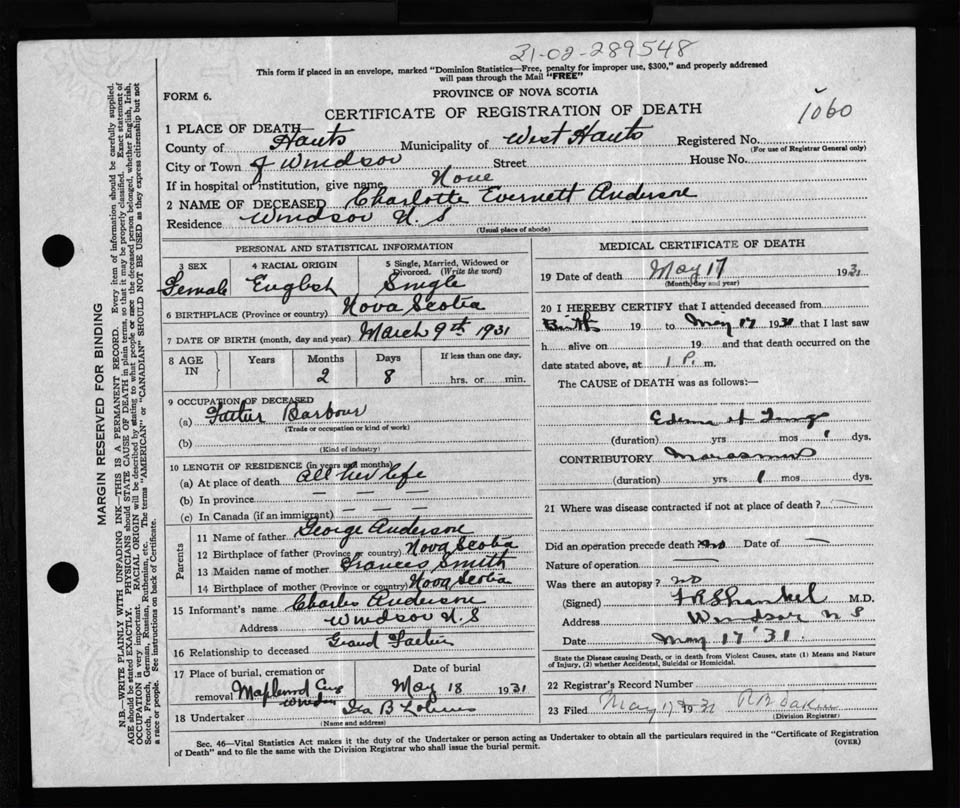 31-02-289548
This form if placed in an envelope, marked "Dominion Statistics—Free, penalty for improper use, $300," and properly addressed
will pass through the Mail "FREE"
FORM 6.
PROVINCE OF NOVA SCOTIA
CERTIFICATE OF REGISTRATION OF DEATH
1060
1 PLACE OF DEATH—
County of Hants Municipality of West Hants Registered No.
(For use of Registrar General only)
City or Town of Windsor Street House No.
If in hospital or institution, give name None
2 NAME OF DECEASED Charlotte Evernett Anderson
Residence Windsor N. S
(Usual place of abode)
PERSONAL AND STATISTICAL INFORMATION
3 SEX
Female
4 RACIAL ORIGIN
English
5 Single, Married, Widowed or
Divorced. (Write the word)
Single
6 BIRTHPLACE (Province or country) Nova Scotia
7 DATE OF BIRTH (month, day and year) March 9th 1931
8 AGE IN
Years Months Days If less than one day.
2 8 hrs. or min.
9 OCCUPATION OF DECEASED
(a) Barbour
(Trade or occupation or kind of work)
(b)
(Kind of industry)
10 LENGTH OF RESIDENCE (in years and months)
(a) At place of death all her life
(b) In province — — —
(c) In Canada (if an immigrant) — — —
Parents
11 Name of father George Anderson
12 Birthplace of father (Province or country) Nova Scotia
13 Maiden name of mother Frances Smith
14 Birthplace of mother (Province or country) Nova Scotia
15 Informant's name Charles Anderson
Address Windsor N S
16 Relationship to deceased Grand
17 Place of burial, cremation or
removal Maplewood Windsor
Date of burial
May 18 1931
18 Undertaker Ira B
(Name and address)
MEDICAL CERTIFICATE OF DEATH
19 Date of death May 17 1931
(Month, day and year)
20 I HEREBY CERTIFY that I attended deceased from
Birth 19 to May 17 1931 that I last saw
h alive on 19 and that death occurred on the
date stated above, at 1 P. m.
The CAUSE of DEATH was as follows:—
Edema of Lungs
(duration) yrs mos 1 dys.
CONTRIBUTORY Marasmus
(duration) yrs 1 mos. dys.
21 Where was disease contracted if not at place of death? —
Did an operation precede death? no Date of —
Nature of operation —
Was there an autopsy? no
(Signed) F R Shankel M.D.
Address Windsor N S
Date May 17 '31
State the Disease causing Death, or in death from Violent Causes, state (1) Means and Nature
of Injury, (2) whether Accidental, Suicidal or Homicidal.
22 Registrar's Record Number
23 Filed May 19 31 R B Dakin
(Division Registrar)
Sec. 46—Vital Statistics Act makes it the duty of the Undertaker or person acting as Undertaker to obtain all the particulars required in the "Certificate of Registration
of Death" and to file the same with the Division Registrar who shall issue the burial permit.
(OVER)
MARGIN RESERVED FOR BINDING
N.B.—WRITE PLAINLY WITH UNFADING INK—THIS IS A PERMANENT RECORD. Every item of information should be carefully supplied.
AGE should be stated EXACTLY. PHYSICIANS should STATE CAUSE OF DEATH in plain terms, so that it may be properly classified. Exact statement of
OCCUPATION is very important. RACIAL ORIGIN will be described by stating to what people or race the deceased person belonged, whether English, Irish,
Scotch, French, German, Russian, Ruthenian, etc. The terms "AMERICAN" or "CANADIAN" SHOULD NOT BE USED as they express citizenship but not
a race or people. See instructions on back of Certificate.